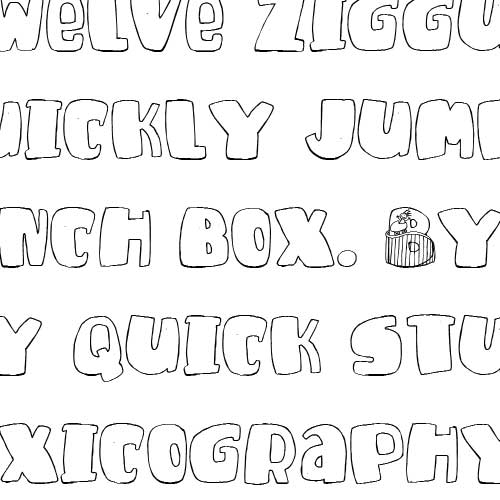 Welve ZIGGU
UICKLY JUMP
NCH BOX. BY
Y QUICK STU
XICOGRaPHY